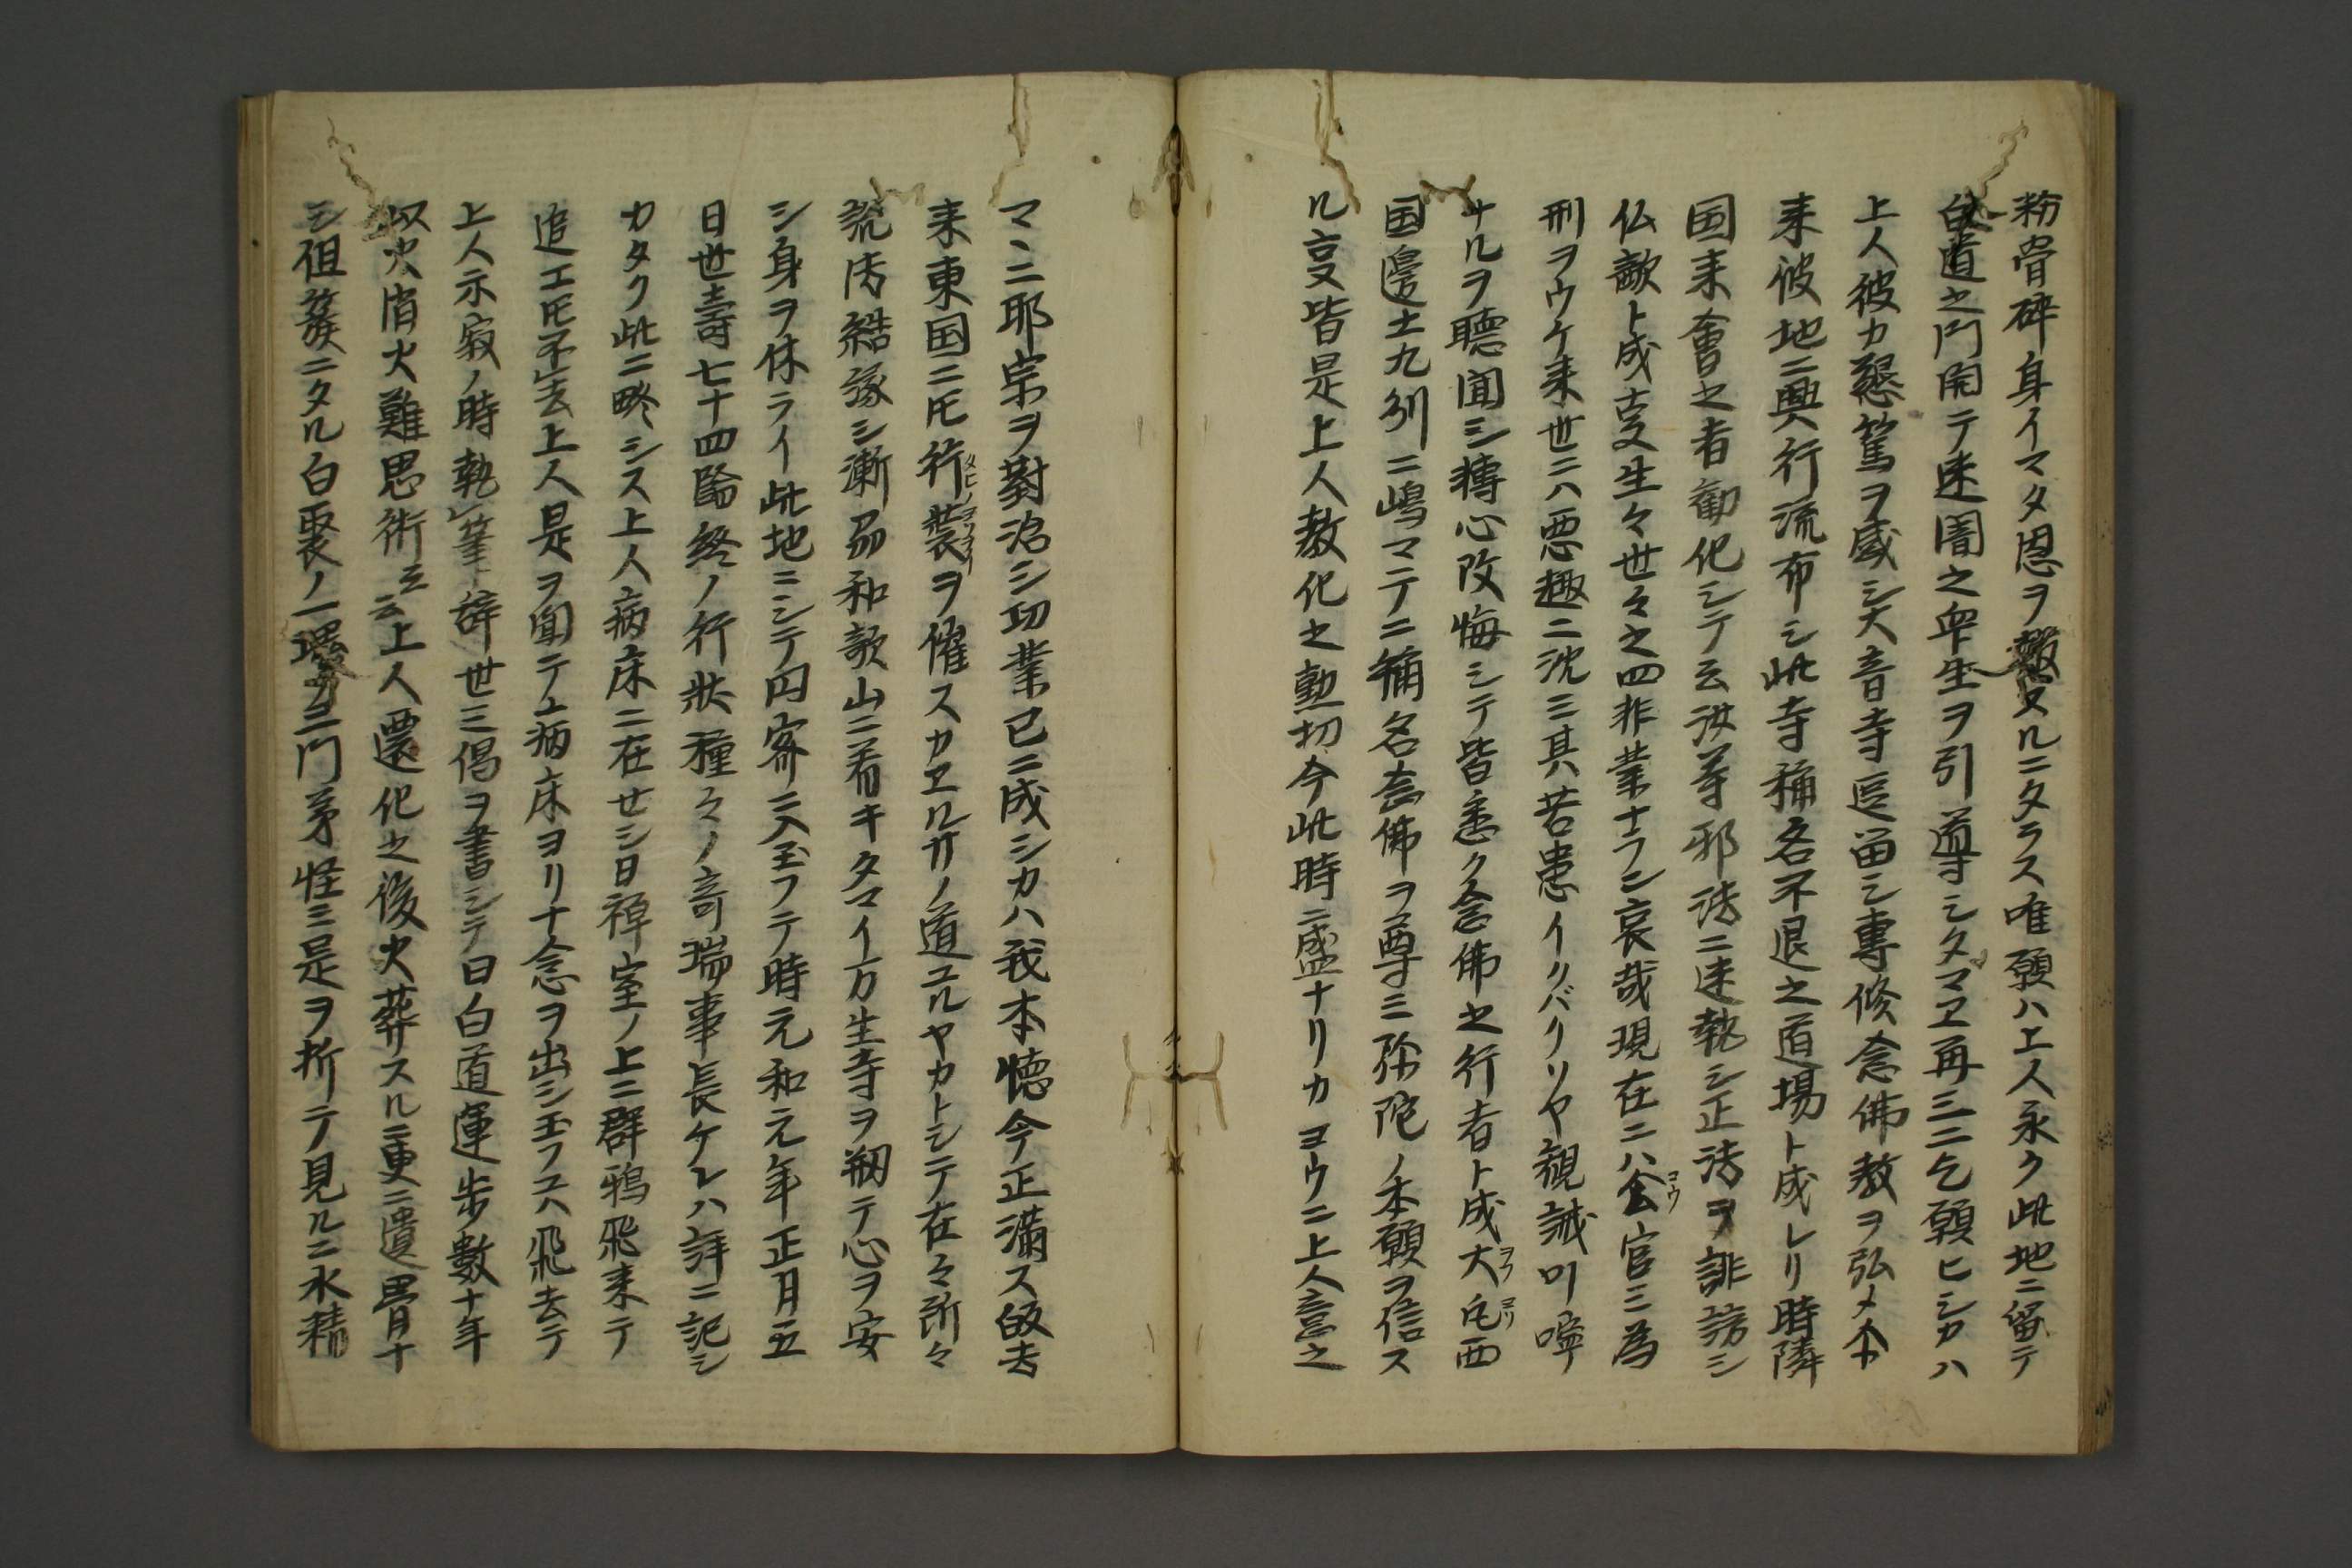 粉骨碎身イマタ恩ヲ報スルニタラス唯願ハ上人永ク此地ニ留テ
白道之門開テ迷闇之衆生ヲ引導シタマヱ再三ニ乞願ヒシカハ
上人彼カ懇篤ヲ感シ大音寺逗留シ專修念佛教ヲ弘メ本
来彼地ニ興行流布シ此寺稱名不退之道場ト成レリ時隣
国来會之者勸化シテ云汝等邪法ニ迷執シ正法ヲ誹謗シ
仏敵ト成亊生々世々之四非業ナラン哀哉現在ニハ公官ニ為
刑ヲウケ来世ニハ悪趣ニ沈ミ其苦患イクバクソヤ親誡叮嚀
ナルヲ聽聞シ轉心改悔シテ皆悉ク念佛之行者ト成大凡西
国邊土九州二嶋マテニ稱名念佛ヲ尊ミ弥陀ノ本願ヲ信ス
ル亊皆是上人教化之勲切今此時ニ盛ナリカヨウニ上人意之
マヽニ耶宗ヲ對治シ功業已ニ成シカハ我本懐今正満ス皈去
来東国ニ𪜈行装ヲ催スカヱル廿ノ道ユルヤカトシテ在々所々
説法結縁シ漸泉和歌山ニ着キタマイ万生寺ヲ剏テ心ヲ安
シ身ヲ休ライ此地ニシテ円寂ニ入玉フテ時元和元年正月五
日世壽七十四臨終ノ行状種々ノ竒瑞事長ケレハ詳ニ記シ
カタク此ニ畧シス上人病床ニ在セシ日禅室ノ上ニ群鴉飛来テ
追エ𪜈不去上人是ヲ聞テ上病床ヨリ十念ヲ出シ玉フユヘ飛去テ
上人示寂ノ時執レ筆辞世三偈ヲ書シテ曰白道運歩數十年
以火消火難思術云云上人還化之後火葬スルニ更ニ遺骨ナ
シ但義ニタル白裹ノ一塊ノミ門弟怪ミ是ヲ折テ見ルニ水精